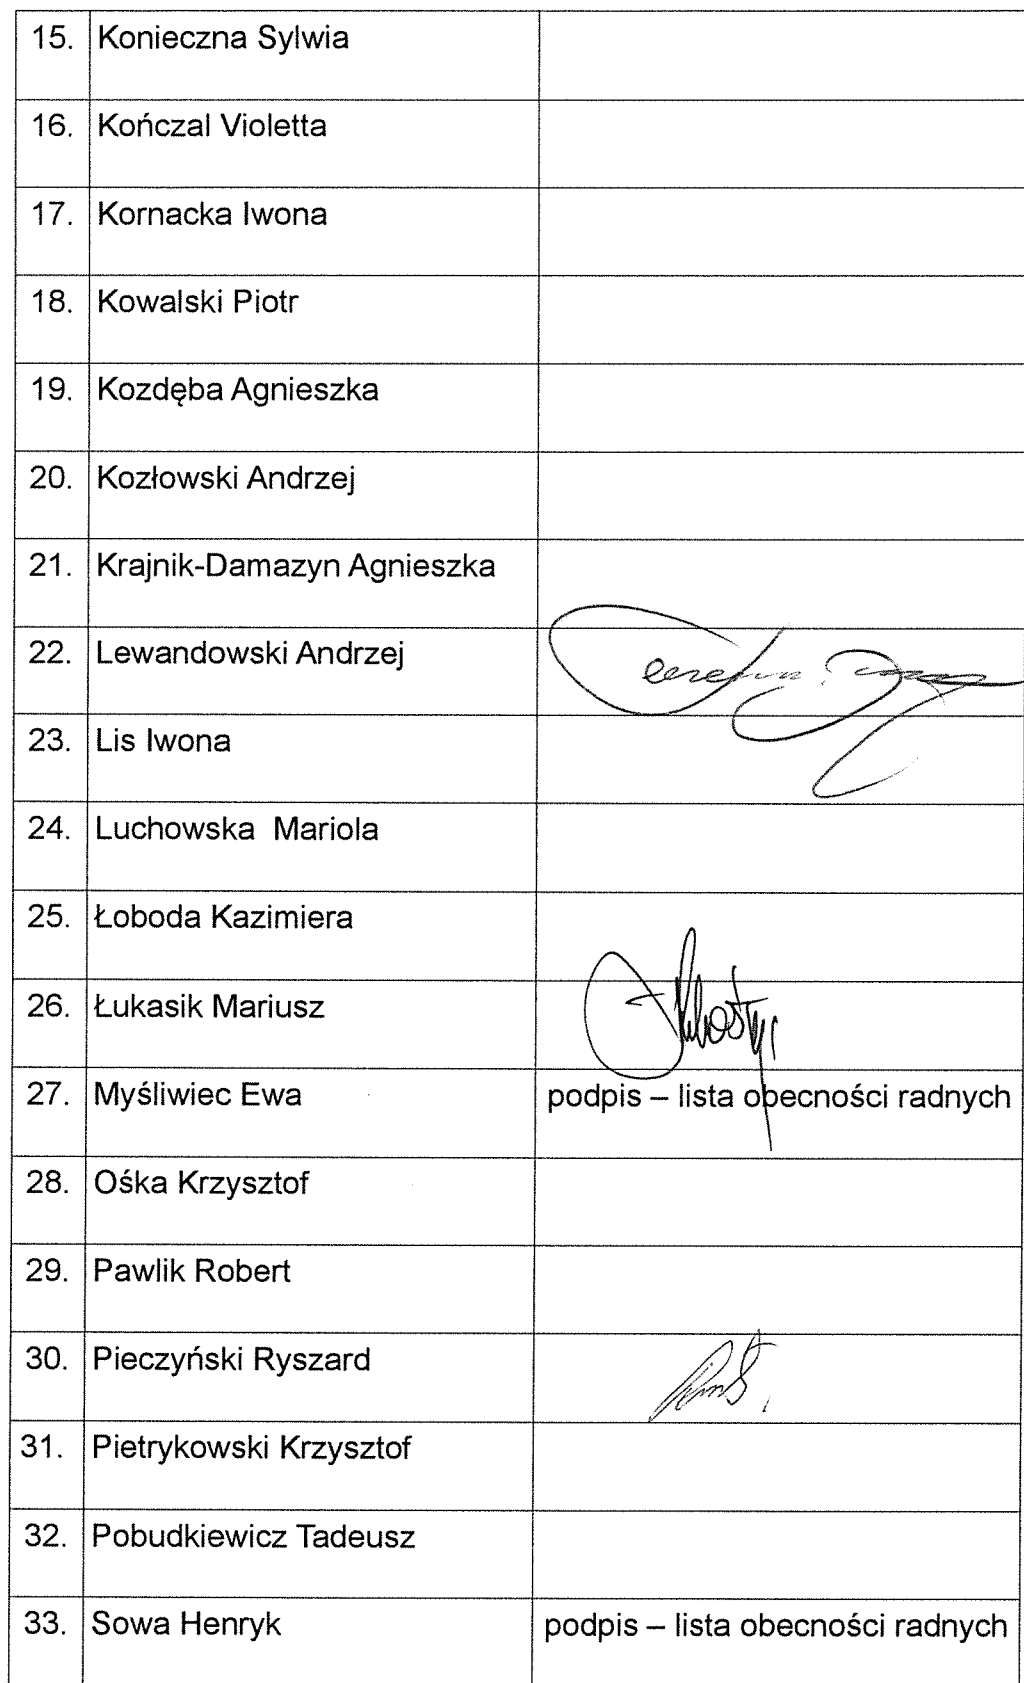 15. Konieczna Sylwia
16. Kończal Violetta
17. Kornacka Iwona
18. Kowalski Piotr
19. Kozdęba Agnieszka
20. Kozłowski Andrzej
21. Krajnik-Damazyn Agnieszka
22. Lewandowski Andrzej
23. Lis Iwona
24. Luchowska Mariola
25. Łoboda Kazimiera
26. Łukasik Mariusz
27. Myśliwiec Ewa podpis – lista obecności radnych
28. Ośka Krzysztof
29. Pawlik Robert
30. Pieczyński Ryszard
31. Pietrykowski Krzysztof
32. Pobudkiewicz Tadeusz
33. Sowa Henryk podpis – lista obecności radnych